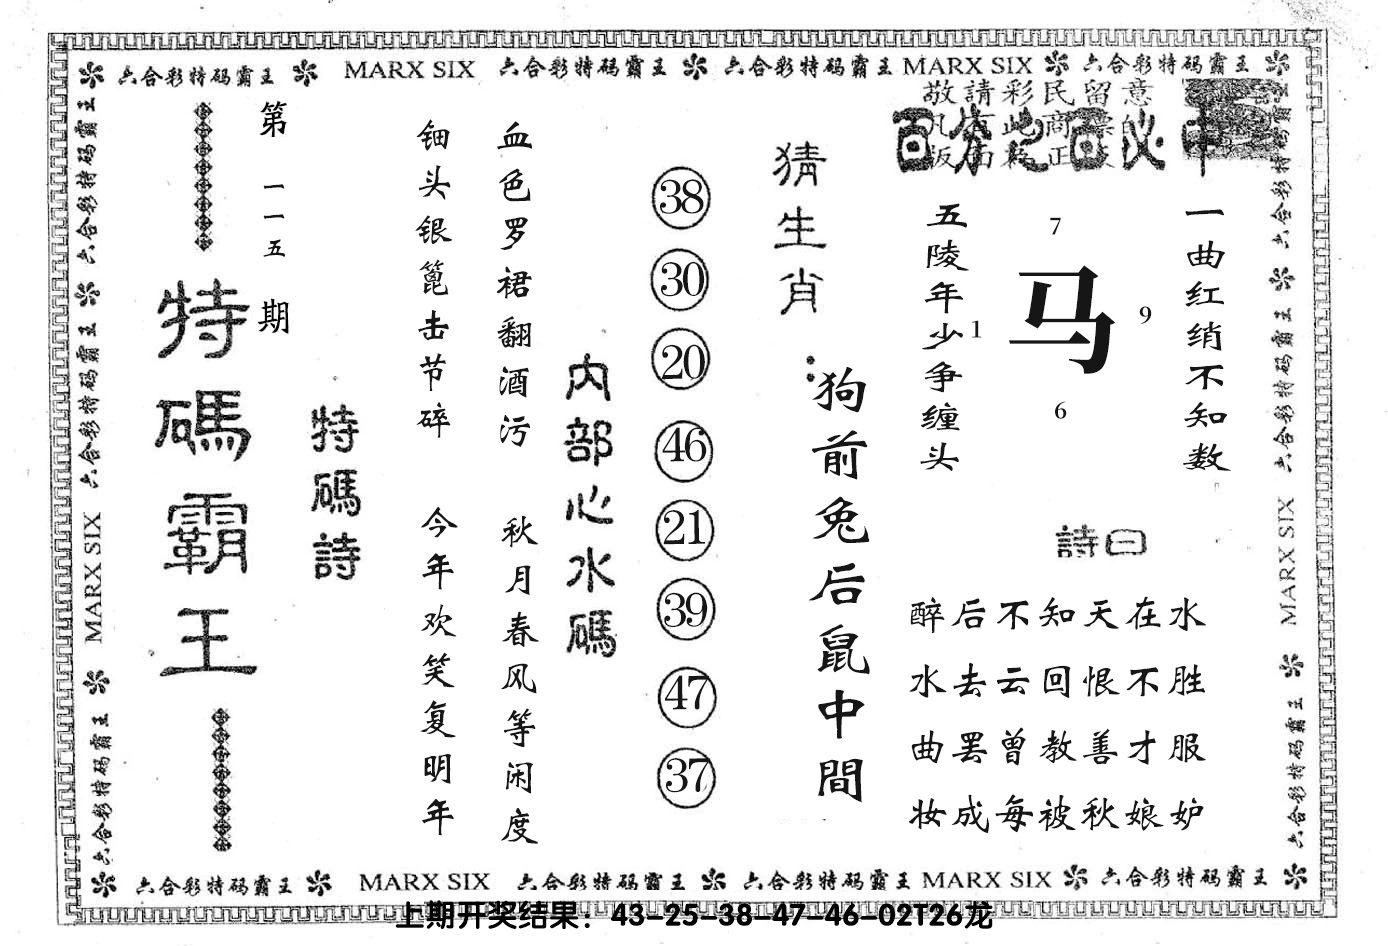 六合彩特码霸王 MARX SIX 六合彩特码霸王 六合彩特码霸王 MARX SIX 六合彩特码霸王
六合彩特码霸王 六合彩特码霸王 MARX SIX 六合彩特码霸王
第一一五期
特碼霸王
特碼詩
钿头银篦击节碎
今年欢笑复明年
血色罗裙翻酒污
秋月春风等闲度
内部心水碼
38
30
20
46
21
39
47
37
猜生肖:
狗前兔后鼠中間
敬請彩民留意
百分之百必中
五陵年少争缠头
7
1
马
9
6
一曲红绡不知数
詩曰
醉后不知天在水
水去云回恨不胜
曲罢曾教善才服
妆成每被秋娘妒
六合彩特码霸王 六合彩特码霸王 MARX SIX 六合彩特码霸王
六合彩特码霸王 MARX SIX 六合彩特码霸王 六合彩特码霸王 MARX SIX 六合彩特码霸王
上期开奖结果：43-25-38-47-46-02T26龙